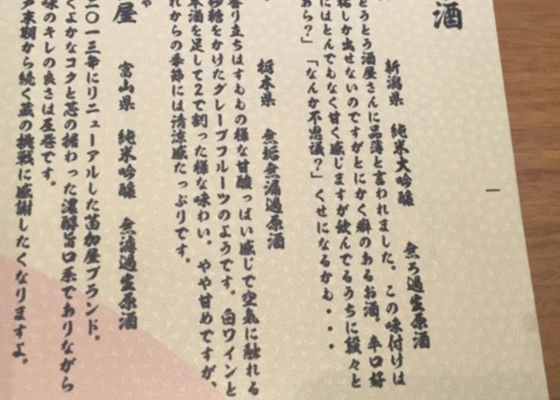 酒
新潟県　純米大吟醸　無ろ過生原酒
とうとう酒屋さんに品薄と言われました。この味付けは
しか出せないのですがとにかく癖のあるお酒。辛口好
にはとんでもなく甘く感じますが飲んでるうちに段々と
あら？」「なんか不思議？」くせになるかも・・・
栃木県　無垢無濾過原酒
香り立ちはすももの様な甘酸っぱい感じで空気に触れる
砂糖をかけたグレープフルーツのようです。白ワインと
本酒を足して2で割った様な味わい。やや甘めですが、
れからの季節には清涼感たっぷりです。
屋
や
富山県　純米吟醸　無濾過生原酒
二〇一三年にリニューアルした苗加屋ブランド。
くよかなコクと芯の据わった濃醇旨口系でありながら
味のキレの良さは圧巻です。
戸末期から続く蔵の挑戦に感謝したくなりますよ。